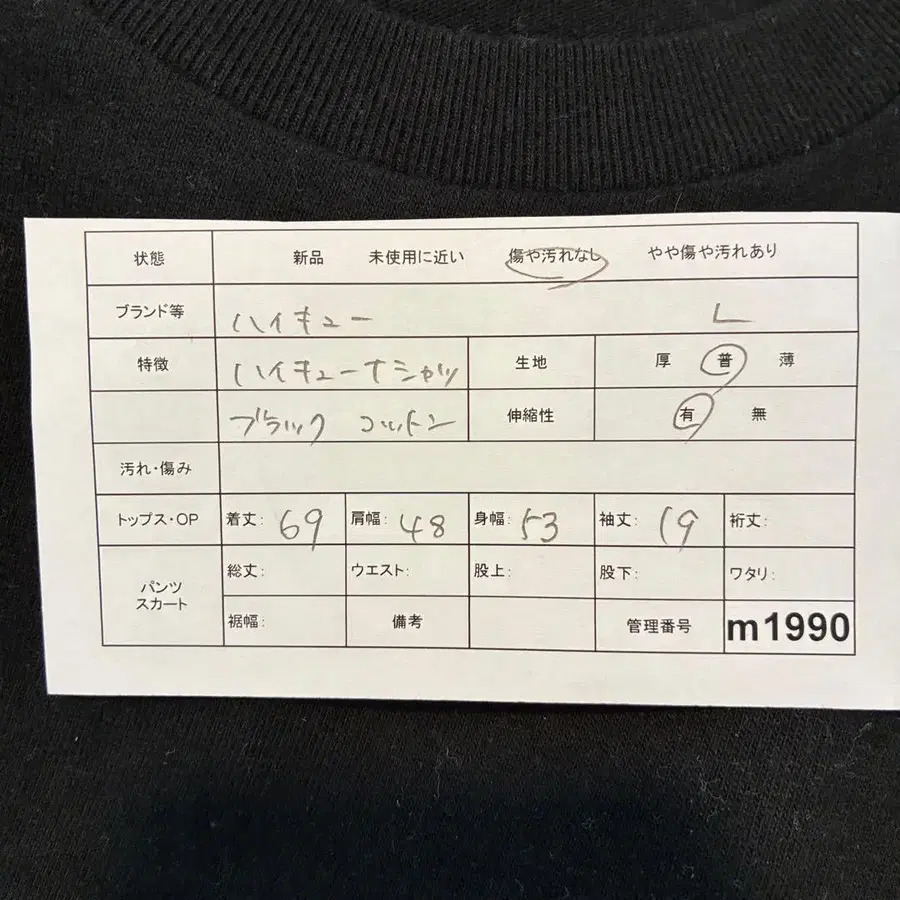 状態 新品 未使用に近い 傷や汚れなし やや傷や汚れあり
ブランド等 ハイキュー L
特徴 ハイキューTシャツ 生地 厚 普 薄
ブラック コットン 伸縮性 有 無
汚れ・傷み
トップス・OP 着丈: 69 肩幅: 48 身幅: 53 袖丈: 19 裄丈:
パンツ スカート 総丈: ウエスト: 股上: 股下: ワタリ:
裾幅: 備考 管理番号 m1990